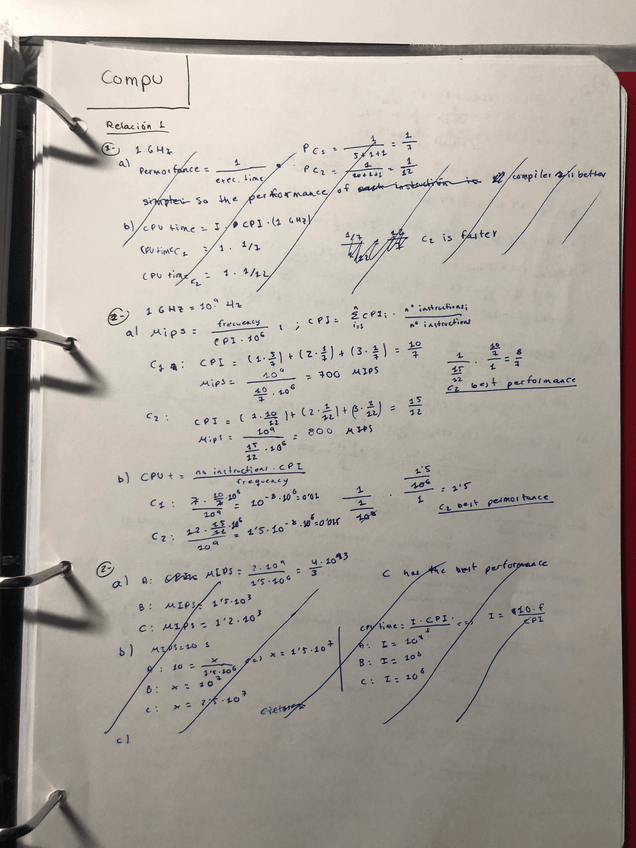 Compu
Relación 1
1- 1 GHz
a) Permorfance = 1 / exec. time ; PC1 = 1 / 5+1+1 = 1/7
PC2 = 1 / 10+1+1 = 1/12
simpler So the performance of each instruction is compiler 2 is better
b) CPU time = I · CPI · (1 GHz)
CPU time C1 = 1 · 1/7
CPU time C2 = 1 · 1/12
C2 is faster
2- 1 GHz = 10⁹ Hz
a) MIPS = frecuency / CPI · 10⁶ ; CPI = Σ CPIi · nº instructionsi / nº instructions
C1: CPI = (1 · 5/7) + (2 · 1/7) + (3 · 1/7) = 10/7
MIPS = 10⁹ / 10/7 · 10⁶ = 700 MIPS
C2 best performance
C2: CPI = (1 · 10/12) + (2 · 1/12) + (3 · 1/12) = 15/12
MIPS = 10⁹ / 15/12 · 10⁶ = 800 MIPS
b) CPU t = ns instructions · CPI / frequency
C1: 7 · 10/7 · 10⁶ / 10⁹ = 10⁻⁸ · 10⁶ = 0'01
C2: 12 · 15/12 · 10⁶ / 10⁹ = 1'5 · 10⁻⁸ · 10⁶ = 0'015
= 1'5
C2 best permortance
2-
a) A: MIPS = 2 · 10⁹ / 1'5 · 10⁶ = 4/3 · 10³
C has the best performance
B: MIPS = 1'5 · 10³
C: MIPS = 1'2 · 10³
b) MIPS = 10 s
A: 10 = x / 1'5 · 10⁶ <=> x = 1'5 · 10⁷
B: x = 10⁷
C: x = 2'5 · 10⁷
CPU time: I · CPI / f <=> I = 10 · f / CPI
A: I =
B: I = 10⁶
C: I = 10⁶
c)